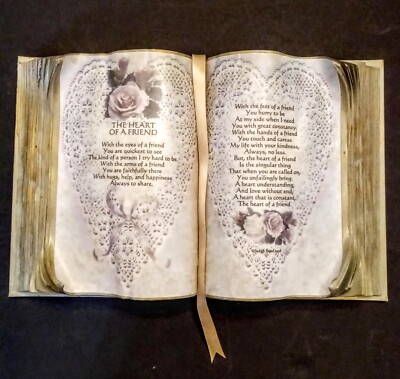 THE HEART
OF A FRIEND
With the eyes of a friend
You are quickest to see
The kind of a person I try hard to be.
With the arms of a friend
You are faithfully there
With hugs, help, and happiness
Always to share.
With the feet of a friend
You hurry to be
At my side when I need
You with great constancy.
With the hands of a friend
You touch and caress
My life with your kindness,
Always, no less.
But, the heart of a friend
Is the singular thing
That when you are called on,
You unfailingly bring.
A heart understanding,
And love without end,
A heart that is constant,
The heart of a friend.